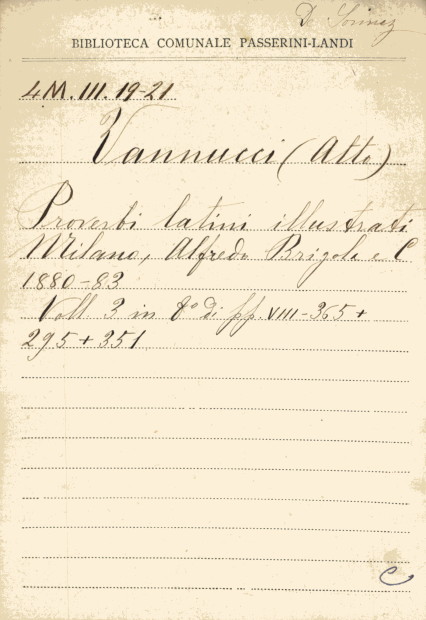 De
BIBLIOTECA COMUNALE PASSERINI-LANDI
4 M. III. 19-21
Vannucci (Atto)
Proverbi latini illustrati
Milano, Alfredo Brigola e C
1880-83
Voll. 3 in 8º di pp. VIII-365+
295+351
C